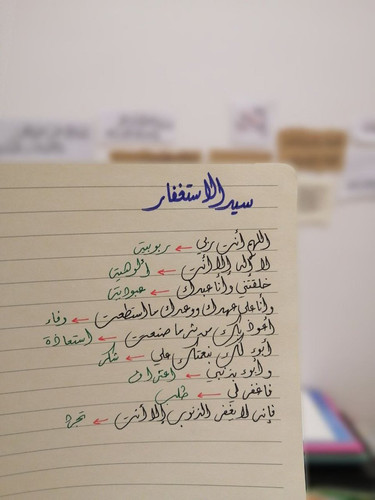 سيد الاستغفار
اللهم أنت ربي ← ربوبية
لا إله إلا أنت ← ألوهية
خلقتني وأنا عبدك ← عبودية
وأنا على عهدك ووعدك ما استطعت ← وفاء
أعوذ بك من شر ما صنعت ← استعاذة
أبوء لك بنعمتك علي ← شكر
وأبوء بذنبي ← اعتراف
فاغفر لي ← طلب
فإنه لا يغفر الذنوب إلا أنت ←